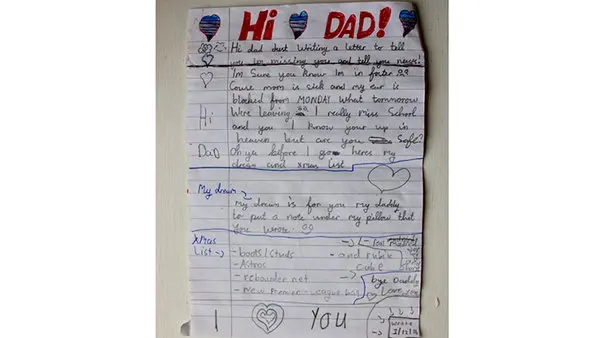 Hi DAD!
Hi dad Just Writing a letter to tell
you im missing you and tell you news!
I'm Sure you know Im in foster
Couse mom is sick and my ear is
blocked from MONDAY What tommorow
Were leaving I really miss School
and you I know your up in
heaven but are you Safe?
Oh ya before I go heres my
dream and xmas list
Hi
Dad
My dream
My dream is for you my daddy
to put a note under my pillow that
you wrote
Xmas
List
- boots/studs
- Astros
- rebounder net
- new
- and rubix
cube
bye Daddy
Love
I YOU
wrote